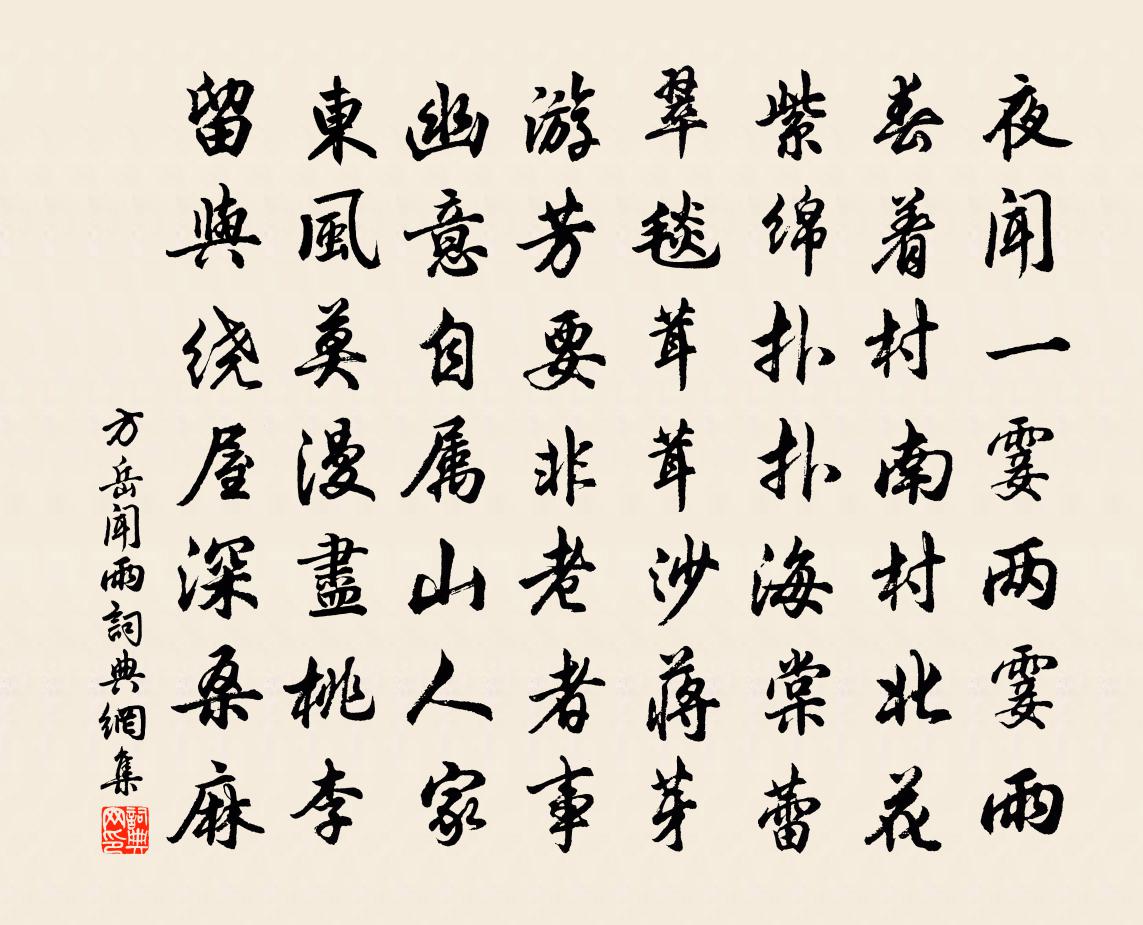 夜闻一霎两霎雨
春着村南村北花
紫绵扑扑海棠蕾
翠毯茸茸沙蒋芽
游芳要非老者事
幽意自属山人家
東風莫漫盡桃李
留與绕屋深桑麻
方岳闻雨詞典網集
詞典网印